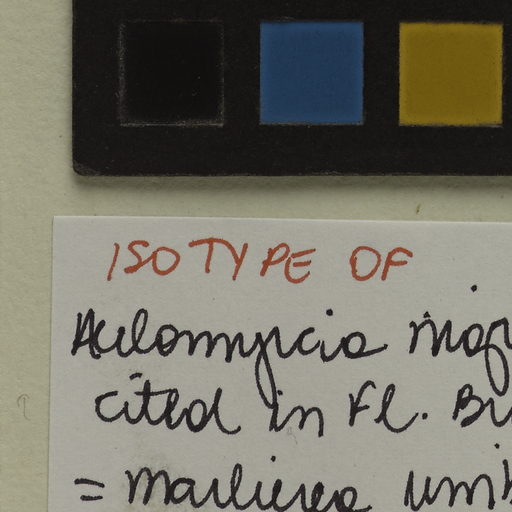 ISOTYPE OF
Aulomyrcia
cited in Fl. Br
= Marlierea umb